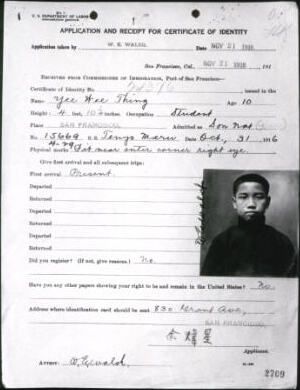 U. S. DEPARTMENT OF LABOR
APPLICATION AND RECEIPT FOR CERTIFICATE OF IDENTITY
Application taken by W. E. WALSH. Date NOV 21 1916
San Francisco, Cal., NOV 21 1916 , 191
RECEIVED FROM COMMISSIONER OF IMMIGRATION, PORT OF SAN FRANCISCO—
Certificate of Identity No. issued in the
Name: Yee Wee Thing Age 10
Height: 4 feet, 10½ inches. Occupation Student
Place SAN FRANCISCO Admitted as Son Nat
No. 15669 ss Tenyo Maru Date Oct, 31 1916
4-29
Physical marks Pit near outer corner right eye.
Give first arrival and all subsequent trips:
First arrival Present.
Departed
Returned
Departed
Returned
Departed
Returned
Did you register? (If not, give reasons.) No.
Have you any other papers showing your right to be and remain in the United States? No.
Address where identification card should be sent 830 Grant Ave,
SAN FRANCISCO
Applicant.
2709